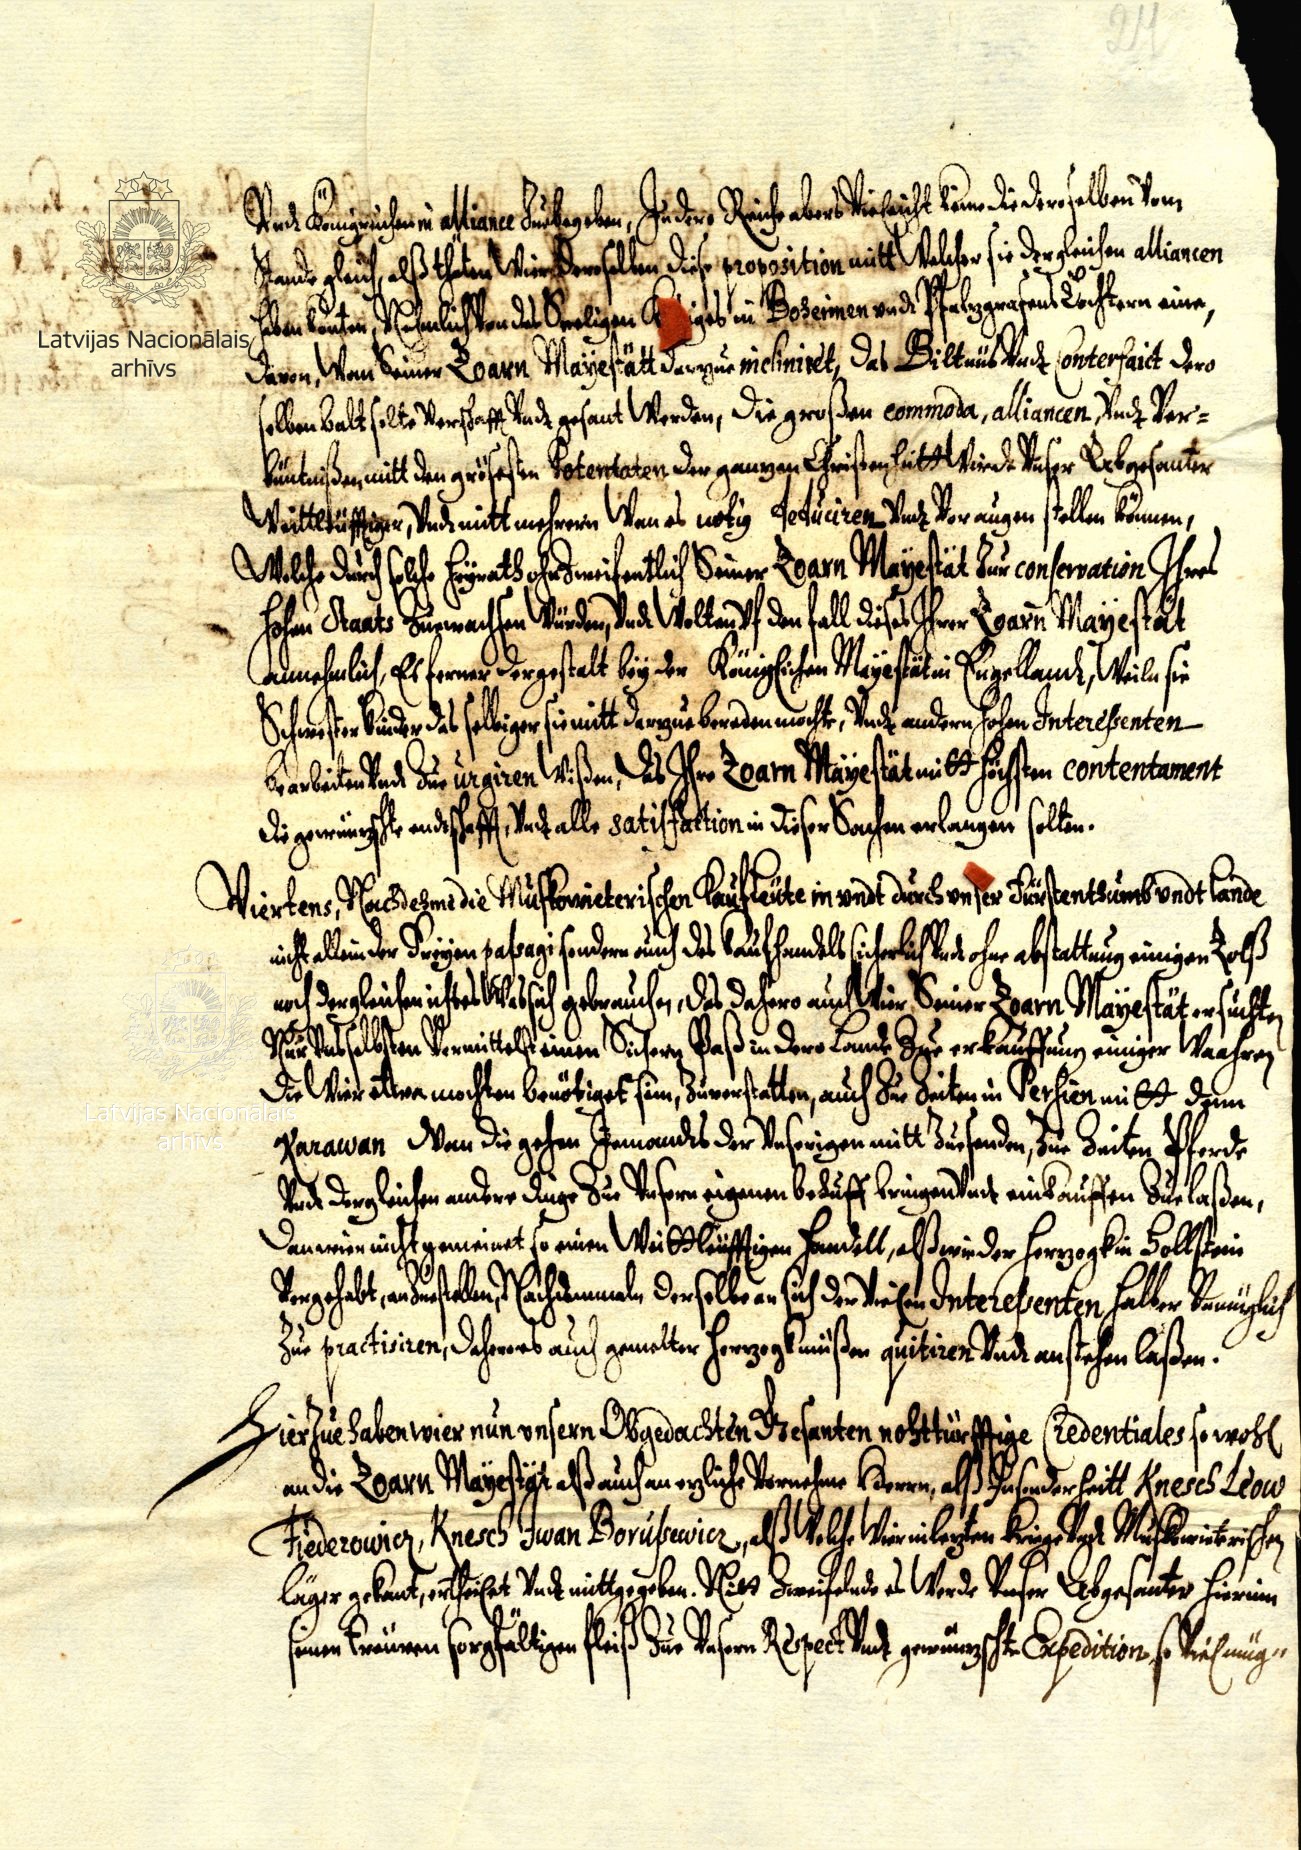 24
Vndt Königreichen in alliance Zuebegeben, In dero Reiche aber Vielleicht keine die deroselben Vom
Stande gleich, alß thäten Wier deroselben diese proposition mitt Welcher sie dergleichen alliancen
haben konten, Nehmlich von des Seeligen Königes in Boheimen vndt Pfaltzgrafens Töchtern eine,
davon, Wan Seiner Zoarn Mayestätt darzue incliniret, das Biltnüs Vndt Conterfaict dero
selben balt solte Verschafft Vndt gesant Werden, die großen commoda, alliancen, Vndt Ver-
büntnißen, mitt den grösesten Potentaten der ganzen Christenheitt Würde Vnser Abgesanter
Weittleüffiger, Vndt mitt mehrern Wan es nötig deduciren Vndt Vor augen stellen können,
Welche durch solche Heyrath ohnzweifentlich Seiner Zoarn Mayestät Zur conservation Ihres
hohen Staats Zuewachsen Würden, Vndt Wolten Vf den fall dieses Ihrer Zoarn Mayestät
annehmlich, Es ferner dergestalt bey der Königlichen Mayestät in Engellandt, Weiln sie
Schwester Kinder das selbiger sie mitt darzue bereden mochte, Vndt andern hohen Interessenten
bearbeiten Vndt Zue urgiren Wißen, das Ihre Zoarn Mayestät mitt höchsten contentament
die gewünzschte endtschafft, Vndt alle satisfaction in dieser Sachen erlangen solten.
Viertens, Nachdehme die Muskowieterischen Kaufleüte in vndt durch vnser Fürstenthumb vndt lande
nicht allein der Freyen passagi sondern auch des Kaufhandels sicherlich Vndt ohne abstattung einigen Zolß
noch dergleichen ichtes Was sich gebrauchen, das dahero auch Wier Seiner Zoarn Mayestät ersuchten
Vor Vns selbsten Vermittelst einen Sichern Paß in dero Lande Zue erkauffung einiger Waahren
die Wier etwa mochten benötiget sein, Zuverstatten, auch Zue Zeiten in Persien mitt denn
Karawan Wan die gehen Jemandes der Vnserigen mitt Zuesenden, Zue Zeiten Pferde
Vndt dergleichen andere dinge Zue Vnsern eigenen behuff bringen Vndt einkauffen Zue laßen,
dan wier nicht gemeinet so einen Weittleüffigen Handell, alß wie der Herzogk in Hollstein
Vorgehabt, anzuestellen, Nachdemmaln derselbe an sich der Vielen Interessenten halber Vnmüglich
Zue practisiren, dahero es auch gemelter Herzogk müßen quitiren Vndt anstehen laßen.
Hierzue haben wier nun vnsern Obgedachten Gesanten nohttürfftige Credentiales so wohl
an die Zoarn Mayestät alß auch an ezliche Vornehme Herrn, alß Insonderheitt Knesch Leow
Fiederowicz, Knesch Iwan Borussewicz, alß Welche Wier in lezten Kriege Vndt Muskowieterischen
läger gekant, ertheilet Vndt mittgegeben. Nitt Zweifelnde es Werde Vnser Abgesanter hierinn
seinen treüwen sorgfältigen fleiß Zue Vnsern Respect Vndt gewünzschte Expedition, so Viel müg-
Latvijas Nacionālais
arhīvs
Latvijas Nacionālais
arhīvs